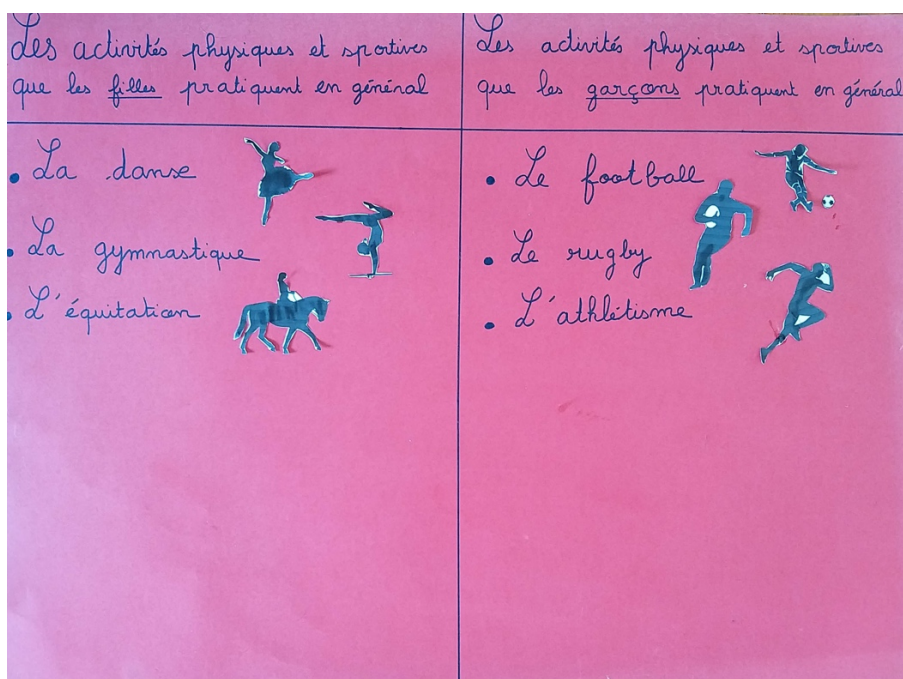 Les activités physiques et sportives
que les filles pratiquent en général
• La danse
• La gymnastique
• L'équitation
Les activités physiques et sportives
que les garçons pratiquent en général
• Le football
• Le rugby
• L'athlétisme